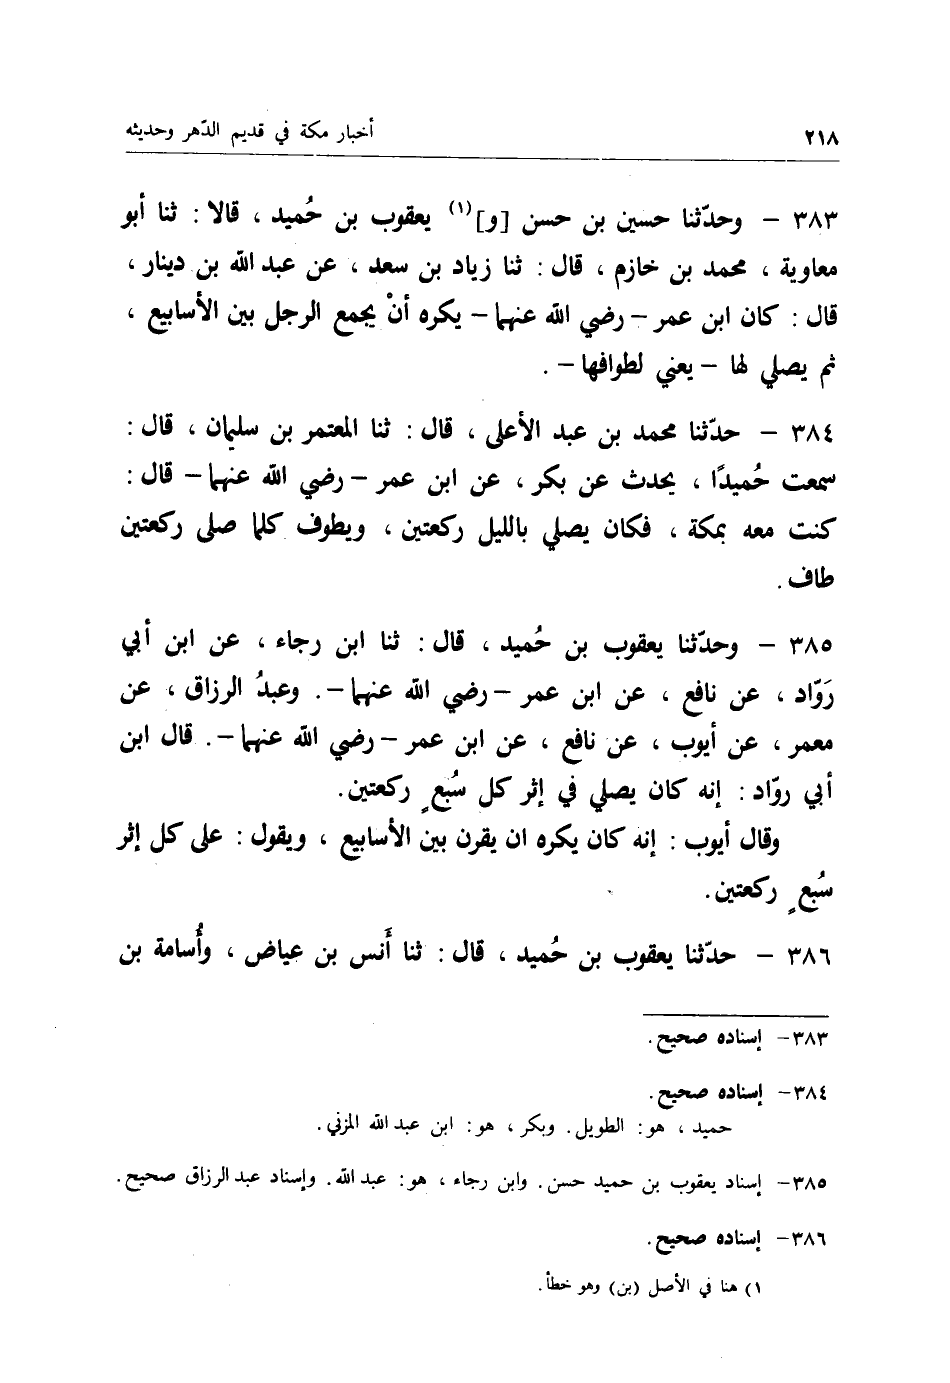 ٢١٨
أخبار مكة في قديم الدّهر وحديثه
٣٨٣ – وحدّثنا حسين بن حسن [و](١) يعقوب بن حُميد ، قالا : ثنا أبو
معاوية ، محمد بن خازم ، قال : ثنا زياد بن سعد ، عن عبد الله بن دينار ،
قال : كان ابن عمر – رضي الله عنهما – يكره أنْ يجمع الرجل بين الأسابيع ،
ثم يصلي لها – يعني لطوافها – .
٣٨٤ – حدّثنا محمد بن عبد الأعلى ، قال : ثنا المعتمر بن سليمان ، قال :
سمعت حُميدًا ، يحدث عن بكر ، عن ابن عمر – رضي الله عنهما – قال :
كنت معه بمكة ، فكان يصلي بالليل ركعتين ، ويطوف كلما صلى ركعتين
طاف .
٣٨٥ – وحدّثنا يعقوب بن حُميد ، قال : ثنا ابن رجاء ، عن ابن أبي
رَوّاد ، عن نافع ، عن ابن عمر – رضي الله عنهما –. وعبدُ الرزاق ، عن
معمر ، عن أيوب ، عن نافع ، عن ابن عمر – رضي الله عنهما –. قال ابن
أبي روّاد : إنه كان يصلي في إثر كل سُبعٍ ركعتين.
وقال أيوب : إنه كان يكره ان يقرن بين الأسابيع ، ويقول : على كل إثر
سُبعٍ ركعتين.
٣٨٦ – حدّثنا يعقوب بن حُميد ، قال : ثنا أَنس بن عياض ، وأُسامة بن
٣٨٣– إسناده صحيح.
٣٨٤– إسناده صحيح.
حميد ، هو : الطويل. وبكر ، هو : ابن عبد الله المزني.
٣٨٥– إسناد يعقوب بن حميد حسن. وابن رجاء ، هو : عبد الله. وإسناد عبد الرزاق صحيح.
٣٨٦– إسناده صحيح.
١) هنا في الأصل (بن) وهو خطأ.